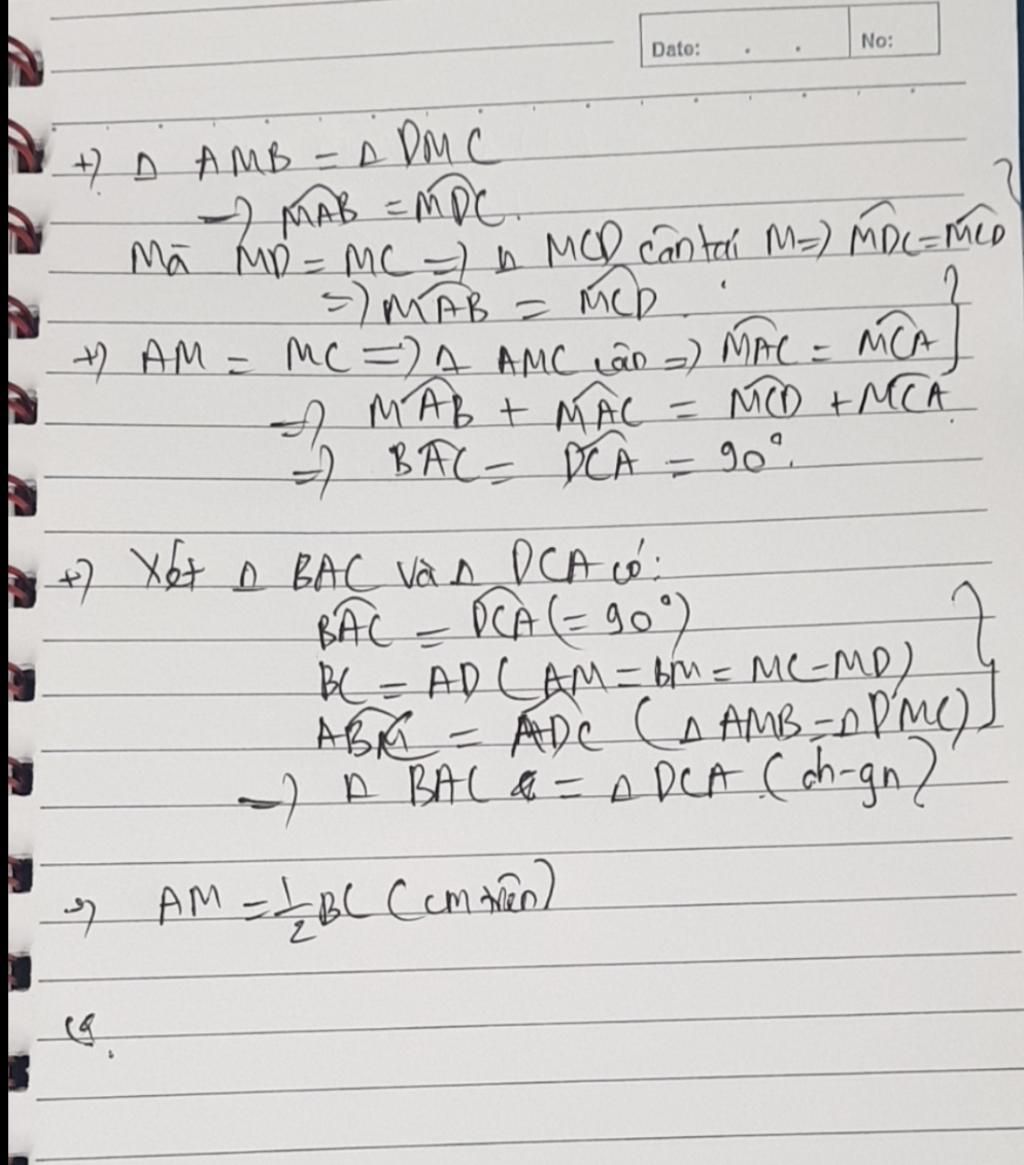 Date: . . No:
+) Δ AMB = Δ DMC
=> MAB = MDC.
Mà MD = MC => Δ MCD cân tại M => MDC = MCD
=> MAB = MCD.
+) AM = MC => Δ AMC cân => MAC = MCA
=> MAB + MAC = MCD + MCA
=> BAC = DCA = 90°.
+) Xét Δ BAC và Δ DCA có:
BAC = DCA (= 90°)
BC = AD (AM = BM = MC = MD)
ABM = ADC (Δ AMB = Δ DMC)
=> Δ BAC = Δ DCA (ch-gn)
=> AM = 1/2 BC (cm trên)